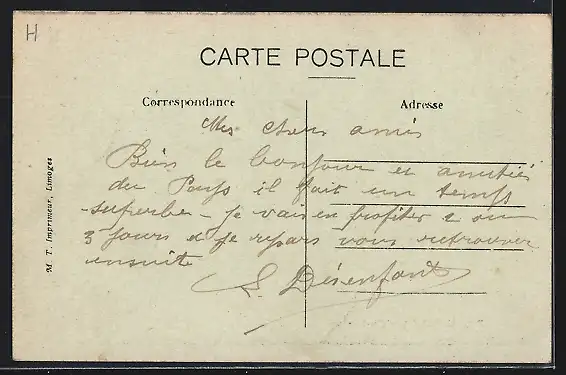 H
CARTE POSTALE
Correspondance
Adresse
Mes chers amis
Bien le bonjour et amitiés
du Pays il fait un temps
superbe - je vais en profiter 2 ou
3 jours et je repars vous retrouver
ensuite
S. Désenfant
M. T. Imprimeur, Limoges